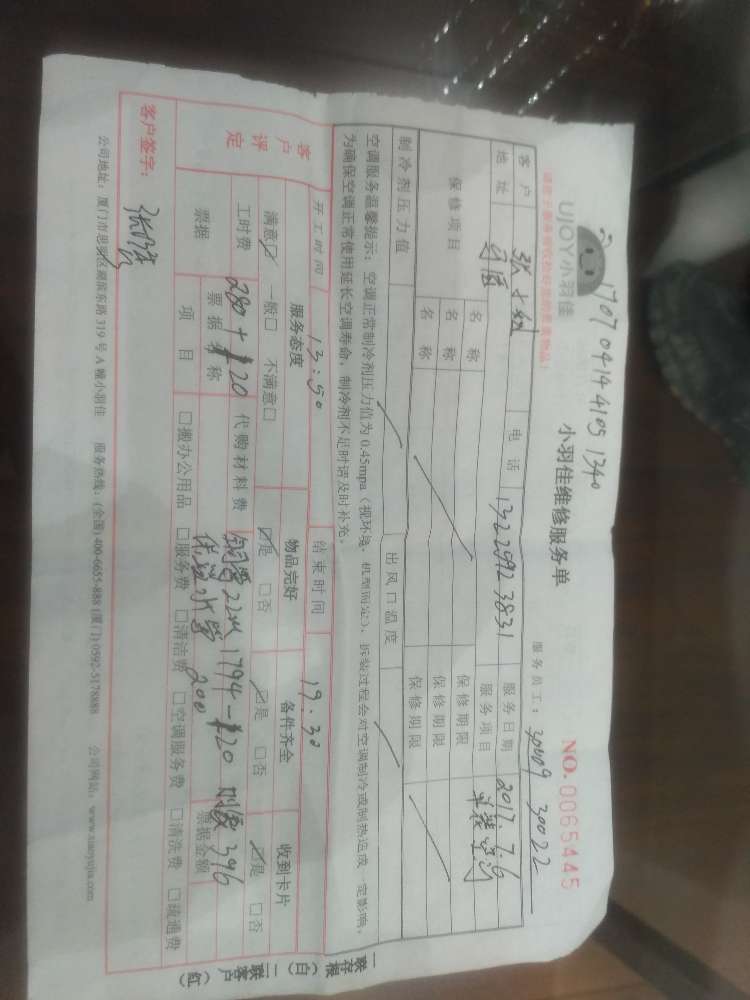 1707 0414 4105 1340
UJOY小羽佳
小羽佳维修服务单
NO.0065445
服务员工： 30022
客户 电话 132 2992 3831 服务日期 2017.7.6
地址 服务项目
保修项目 名称 保修期限
名称 保修期限
名称 保修期限
制冷剂压力值 出风口温度
空调服务温馨提示：空调正常制冷剂压力值为0.45mpa（视环境、机型而定），拆装过程会对空调制冷或制热造成一定影响，
为确保空调正常使用延长空调寿命，制冷剂不足时请及时补充。
开工时间 13:50 结束时间 19:30
客户评定 服务态度 物品完好 备件齐全 收到卡片
满意☑ 一般□ 不满意□ ☑是 □否 ☑是 □否 ☑是 □否
工时费 280+ 20 代购材料费 铜管22m 1794-20
水管 200 396
票据 票据名称 票据金额
项目 □搬办公用品 □服务费 □清洁费 □空调服务费 □清洗费 □疏通费
客户签字：
公司地址：厦门市思明区湖滨东路319号A幢小羽佳 服务热线：(全国) 400-6655-888 (厦门) 0592-5178888 公司网站：www.xiaoyujia.com
一联存根（白） 二联客户（红）